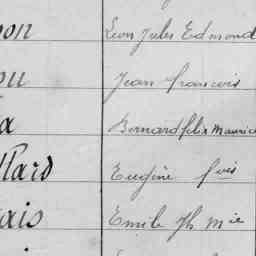 on Léon Jules Edmond
ou Jean françois
a Bernard félix Maurice
llard Eugène fois
ais Emile Ph Mie